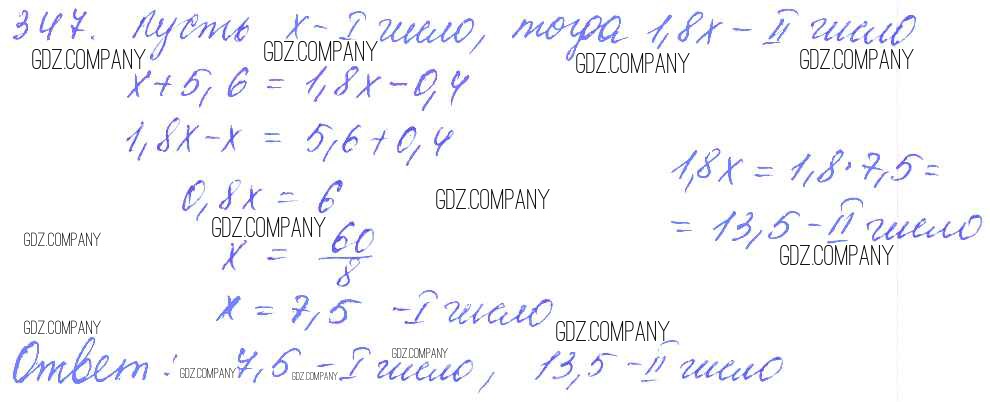 347. Пусть x - I число, тогда 1,8x - II число
GDZ.COMPANY GDZ.COMPANY GDZ.COMPANY GDZ.COMPANY
x + 5,6 = 1,8x - 0,4
1,8x - x = 5,6 + 0,4
1,8x = 1,8 · 7,5 =
0,8x = 6
GDZ.COMPANY
= 13,5 - II число
GDZ.COMPANY GDZ.COMPANY
x = 60/8
GDZ.COMPANY
x = 7,5 - I число
GDZ.COMPANY GDZ.COMPANY
Ответ: 7,5 - I число, 13,5 - II число
GDZ.COMPANY GDZ.COMPANY GDZ.COMPANY